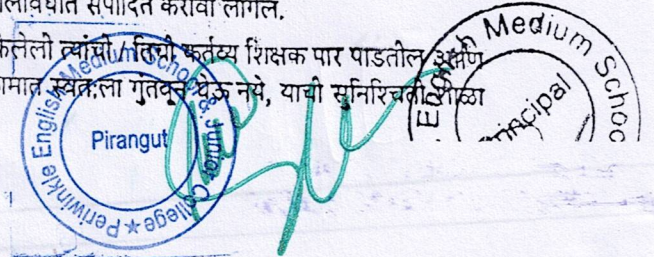 कालावधीत संपादित करावी लागेल.
केलेली त्यांची / तिची कर्तव्य शिक्षक पार पाडतील
स्वत:ला गुंतवून घेऊ नये, याची सुनिश्चिती शाळा
Periwinkle English Medium School & Junior College ★
Pirangut
English Medium Schoo
Principal